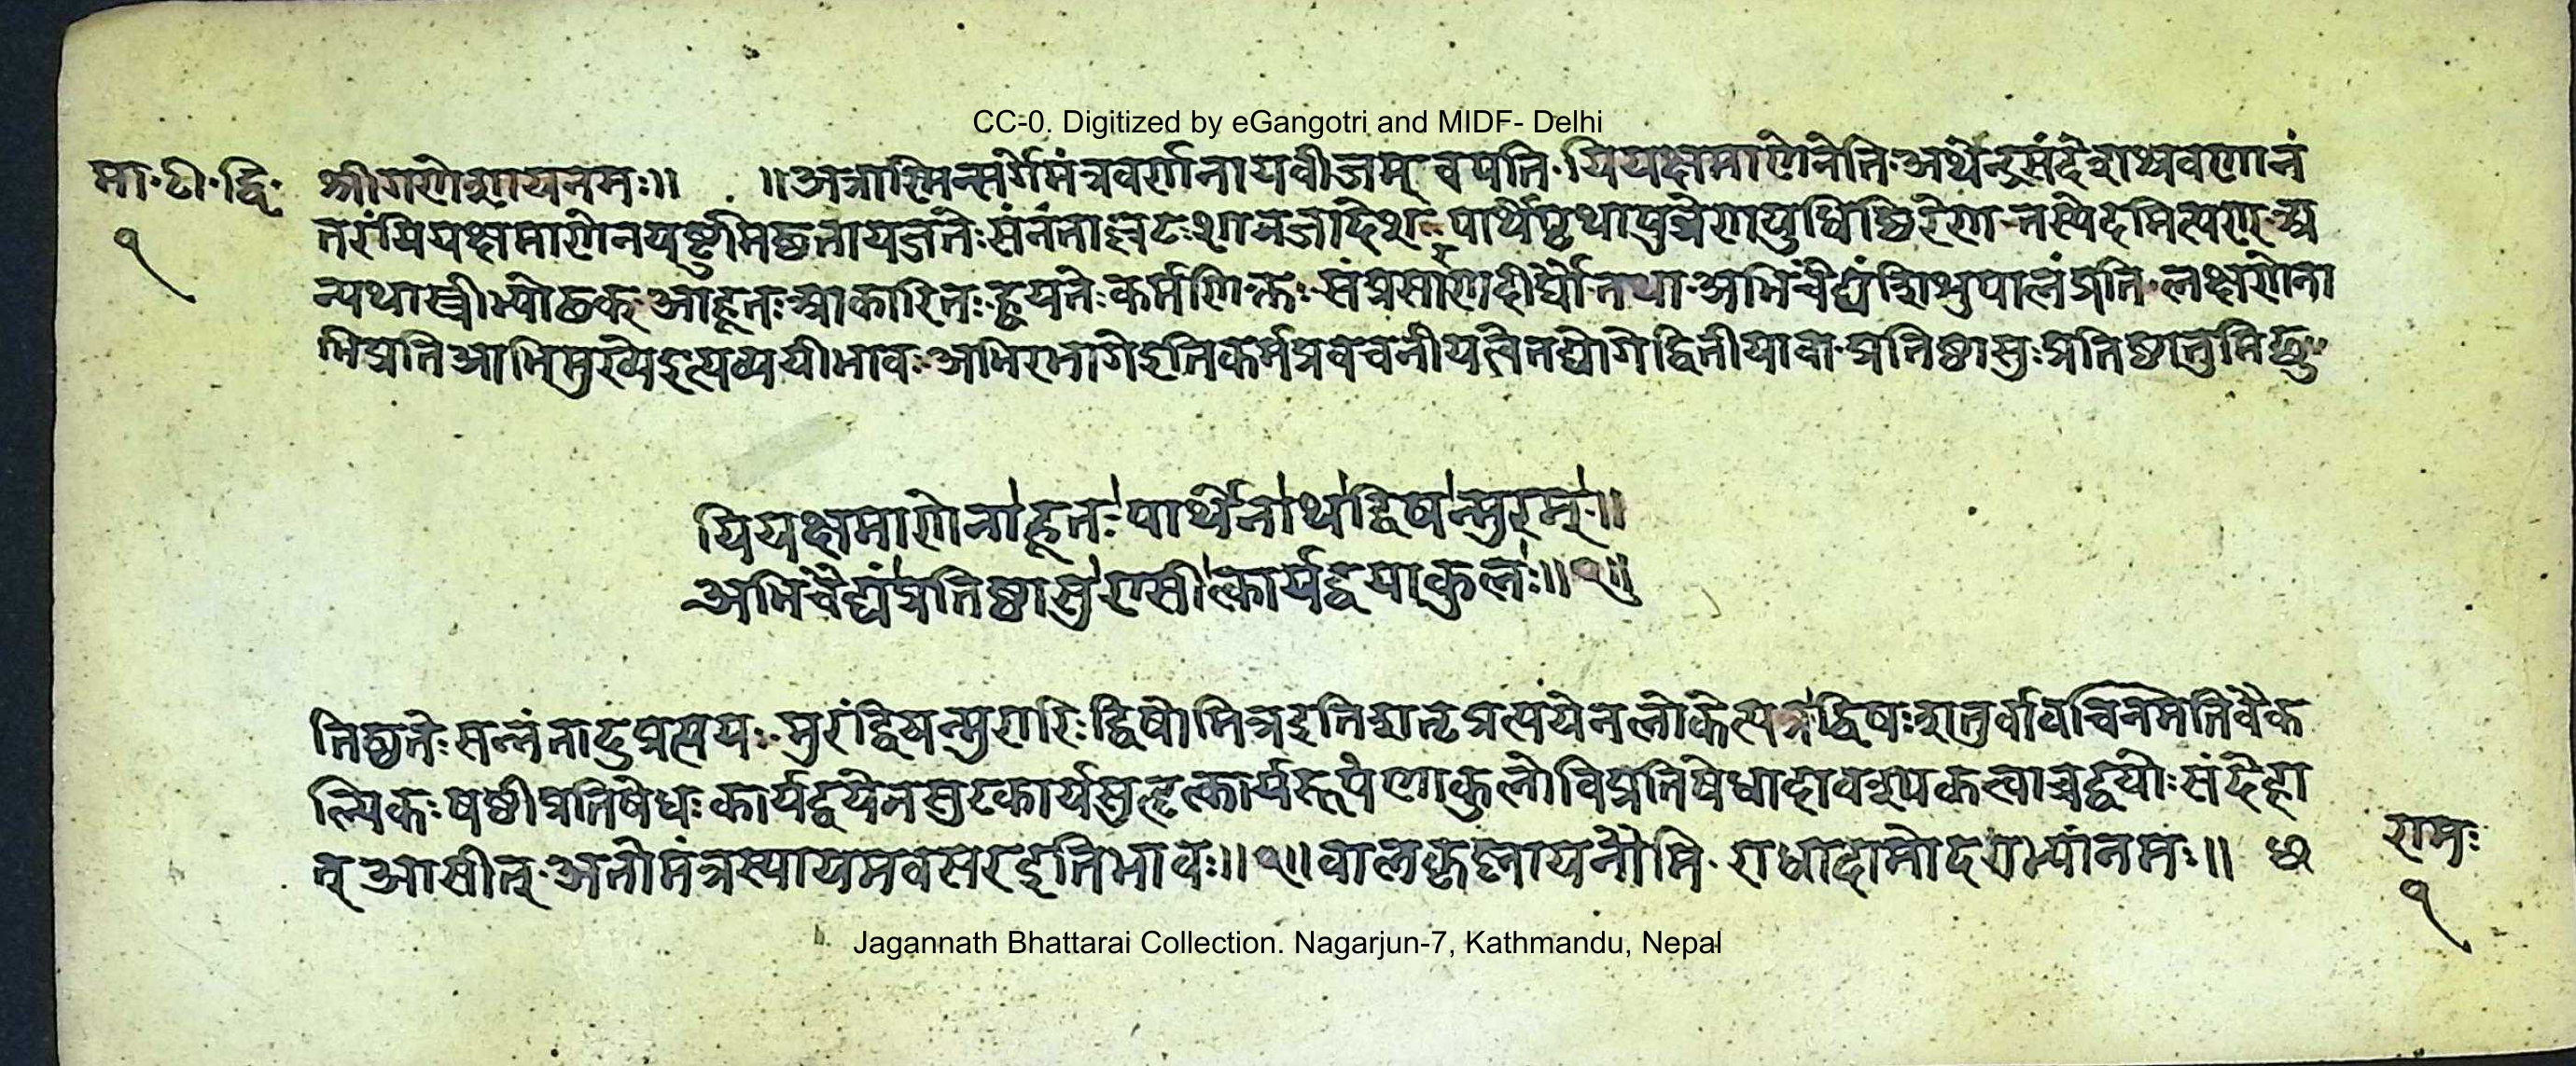 CC-0. Digitized by eGangotri and MIDF- Delhi
मा॰ टी॰ द्वि॰
१
श्रीगणेशायनमः॥ ॥अत्रास्मिन्सर्गेमंत्रवर्णनायबीजम् वपति॰यियक्षमाणेनेति॰अथेन्द्रसंदेशश्रवणानं
तरंयियक्षमाणेनयष्टुमिछतायजतेःसंनंताल्लटःशानजादेशः पार्थेपृथापुत्रेणयुधिष्ठिरेण॰तस्येदमित्यण् अ
न्यथास्त्रीभ्योढक् आहूतःआकारितःह्वयतेःकर्मणिक्तः संप्रसारणदीर्घौतथा॰अभिचैद्यंशिशुपालंप्रति॰लक्षणेना
भिप्रतिआभिमुख्येइत्यव्ययीभावः अभिरभागेइतिकर्मप्रवचनीयत्वेतद्योगेद्वितीयावा॰प्रतिष्ठासुःप्रतिष्ठातुमिछुः
यियक्षमाणेनाहूतः पार्थेनाथद्विषन्मुरम्॥
अभिचैद्यंप्रतिष्ठासुरासीत्कार्यद्वयाकुलः॥१॥
तिष्ठतेःसन्नंतादुप्रत्ययः मुरंद्विषन्मुरारिः द्विषोमित्रइतिशतृप्रत्ययेनलोकेत्यत्रद्विषःशतुर्वावचिनमितिवैक
ल्पिकः षष्ठीप्रतिषेधः कार्यद्वयेनसुरकार्यसुहृत्कार्यरूपेणाकुलोविप्रतिषेधादावश्यकत्वाच्चद्वयोःसंदेहा
त् आसीत्॰अतोमंत्रस्यायमवसरइतिभावः॥१॥बालकृष्णायनौमि॰ राधादामोदराभ्यांनमः॥
रामः
१
Jagannath Bhattarai Collection. Nagarjun-7, Kathmandu, Nepal